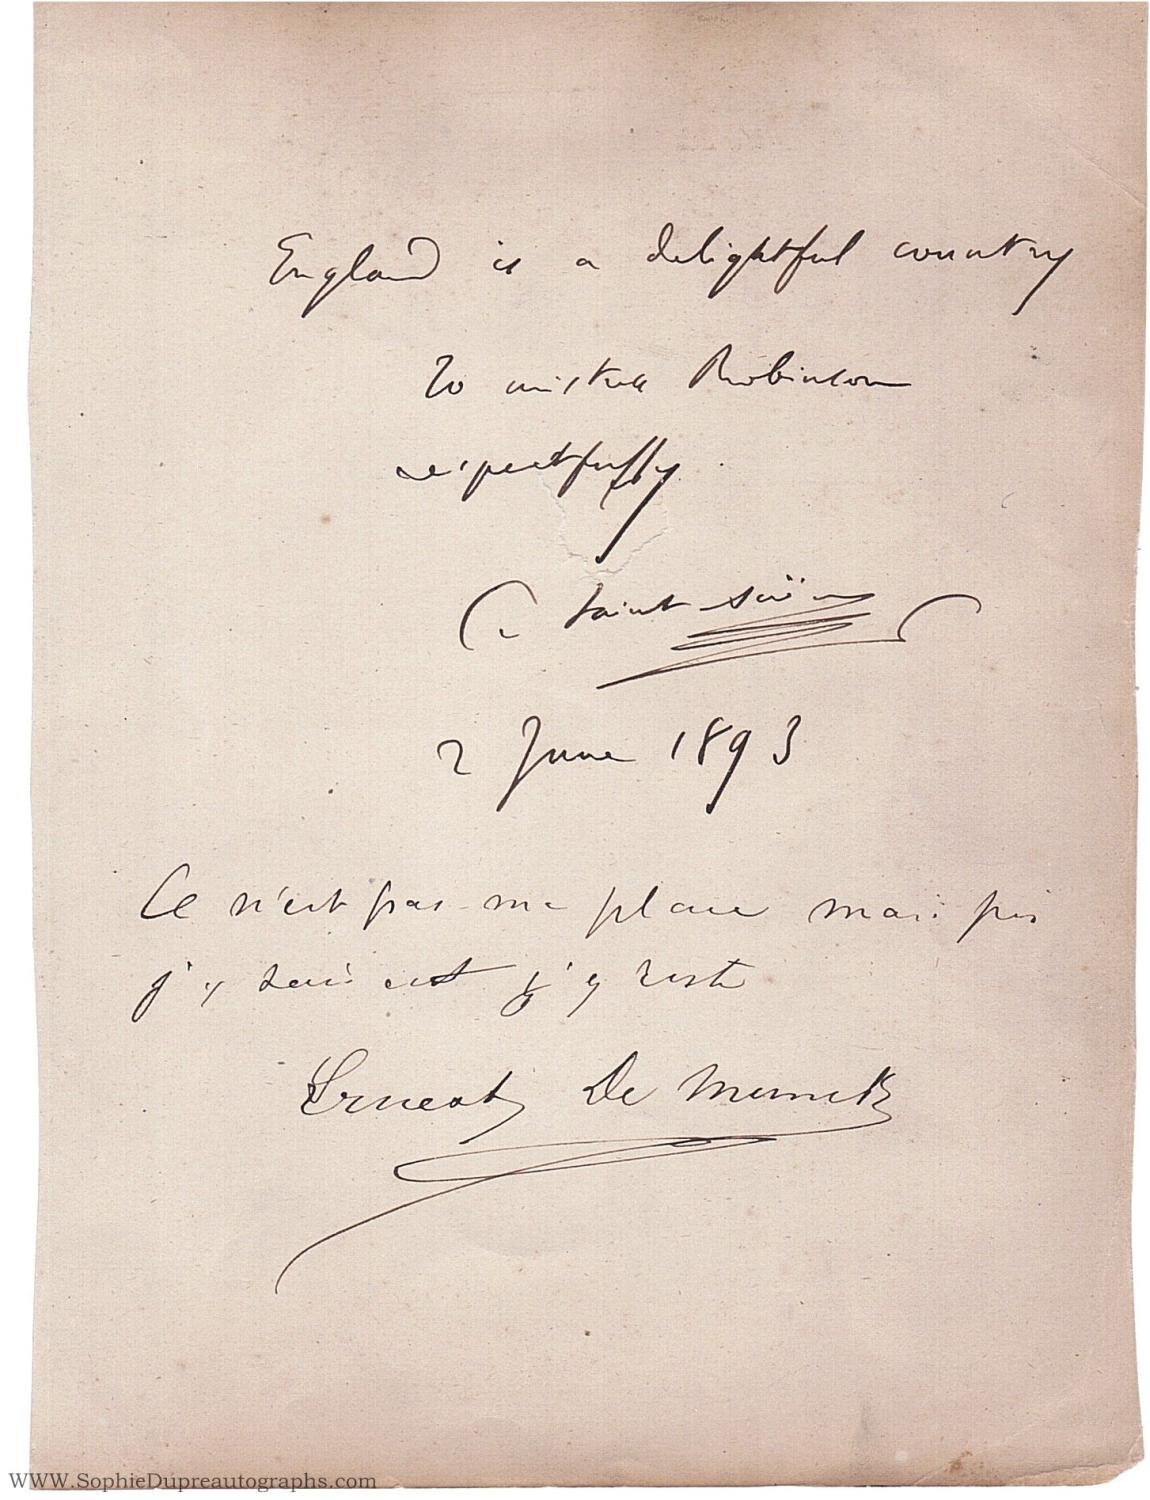 England is a delightful country
To mistress Robinson
respectfully
C. Saint-Saëns
2 June 1893
Ce n'est pas ma place mais puis
j'y suis et j'y reste
Ernest De Munck
WWW.SophieDupreautographs.com